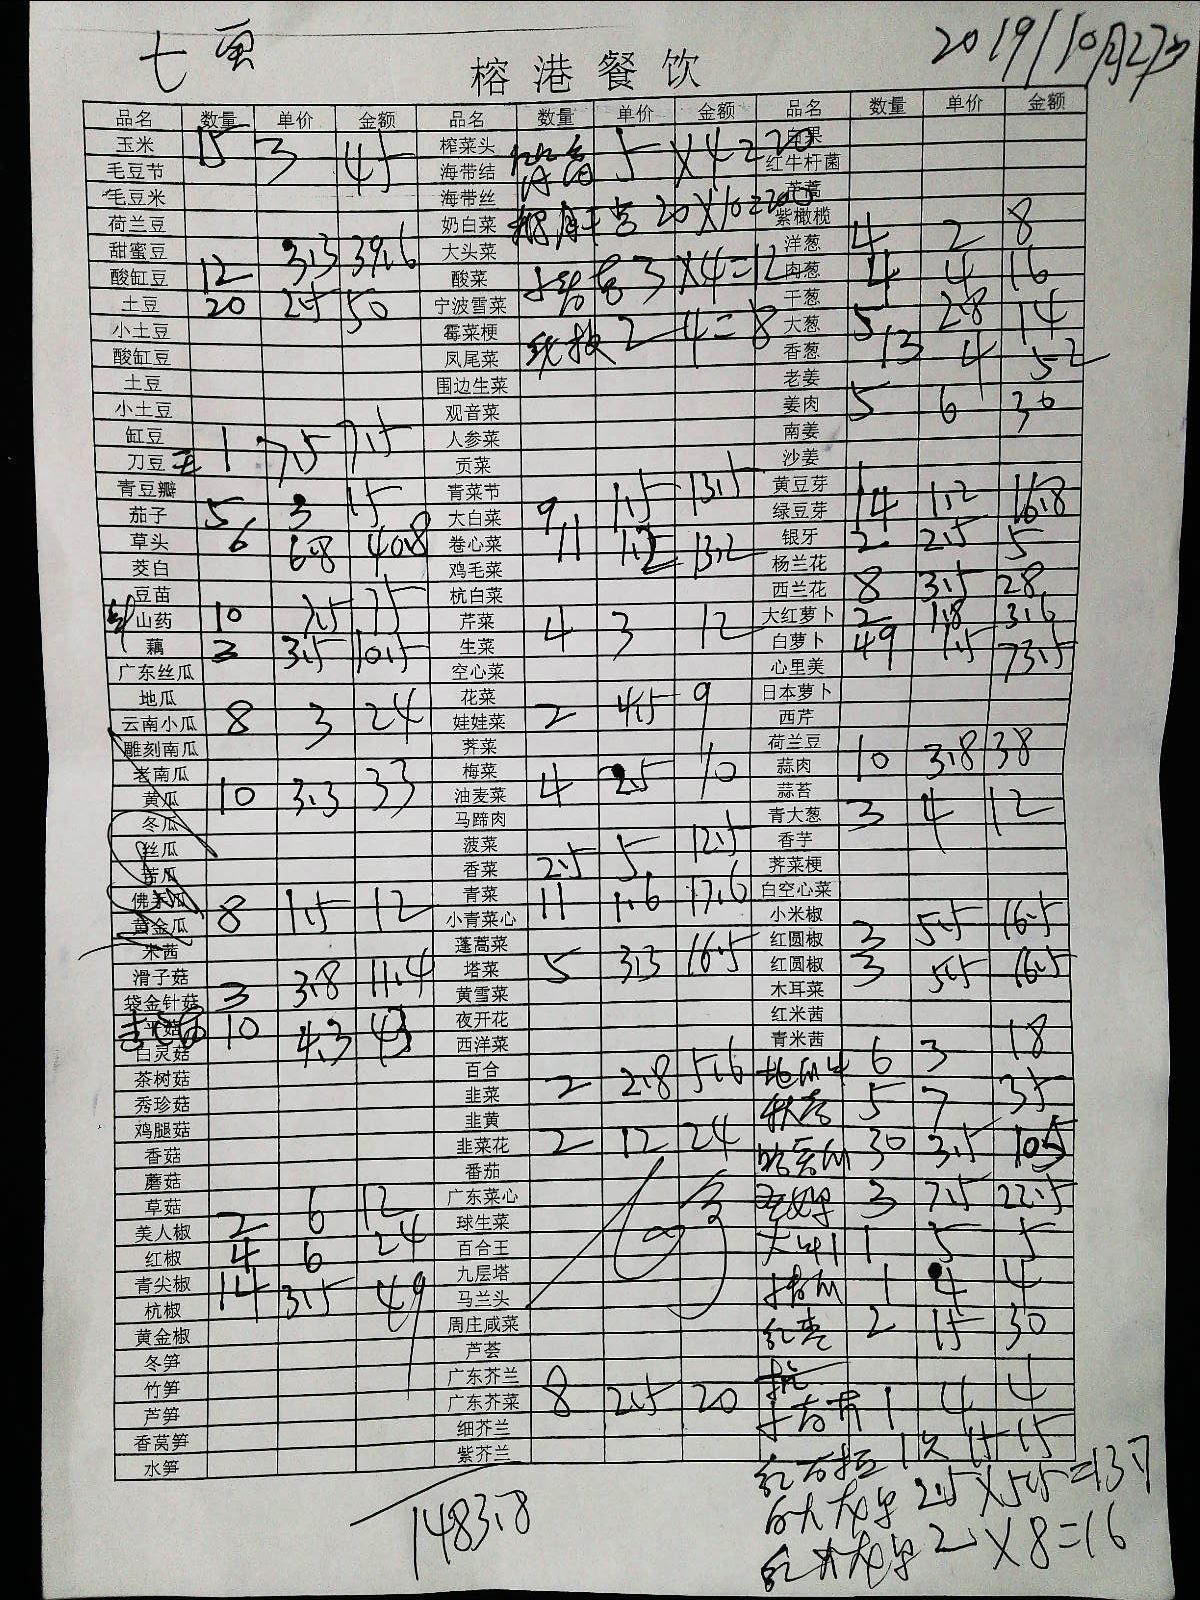 2019/10月27日
榕港餐饮
品名 数量 单价 金额 品名 数量 单价 金额 品名 数量 单价 金额
玉米 15 3 45 榨菜头 5 X 4 = 20 白果
毛豆节 海带结 红牛杆菌
毛豆米 海带丝 20 X 10 = 200
荷兰豆 奶白菜 紫橄榄
甜蜜豆 大头菜 洋葱 4 2 8
酸缸豆 12 3.3 39.6 酸菜 3 X 4 = 12 肉葱 4 4 16
土豆 20 2.5 50 宁波雪菜 干葱
小土豆 霉菜梗 2 4 = 8 大葱 5 2.8 14
酸缸豆 凤尾菜 香葱 13 4 52
土豆 围边生菜 老姜
小土豆 观音菜 姜肉 5 6 30
缸豆 人参菜 南姜
刀豆 1 7.5 7.5 贡菜 沙姜
青豆瓣 青菜节 黄豆芽
茄子 5 3 15 大白菜 9 1.5 13.5 绿豆芽 14 1.2 16.8
草头 6 6.8 40.8 卷心菜 11 1.2 13.2 银牙 2 2.5 5
茭白 鸡毛菜 杨兰花
豆苗 杭白菜 西兰花 8 3.5 28
山药 10 7.5 75 芹菜 4 3 12 大红萝卜 2 1.8 3.6
藕 3 3.5 10.5 生菜 白萝卜 49 1.5 73.5
广东丝瓜 空心菜 心里美
地瓜 花菜 日本萝卜
云南小瓜 8 3 24 娃娃菜 2 4.5 9 西芹
雕刻南瓜 荠菜 荷兰豆
老南瓜 梅菜 蒜肉 10 3.8 38
黄瓜 10 3.3 33 油麦菜 4 2.5 10 蒜苔
冬瓜 马蹄肉 青大葱 3 4 12
丝瓜 菠菜 香芋
苦瓜 香菜 2.5 5 12.5 荠菜梗
佛手瓜 青菜 11 1.6 17.6 白空心菜
黄金瓜 8 1.5 12 小青菜心 小米椒
米茜 蓬蒿菜 红圆椒 3 5.5 16.5
滑子菇 塔菜 5 3.3 16.5 红圆椒 3 5.5 16.5
袋金针菇 3 3.8 11.4 黄雪菜 木耳菜
平菇 10 4.3 43 夜开花 红米茜
白灵菇 西洋菜 青米茜
茶树菇 百合 6 3 18
秀珍菇 韭菜 2 2.8 5.6 5 7 35
鸡腿菇 韭黄
香菇 韭菜花 2 12 24 30 3.5 105
蘑菇 番茄
草菇 广东菜心 3 7.5 22.5
美人椒 2 6 12 球生菜
红椒 4 6 24 百合王 1 5 5
青尖椒 14 3.5 49 九层塔 1 4 4
杭椒 马兰头
黄金椒 周庄咸菜 红枣 2 15 30
冬笋 芦荟
竹笋 广东芥兰
芦笋 8 2.5 20 广东芥菜 1 4 4
香莴笋 细芥兰
水笋 紫芥兰 15 15
2.5 X 5.5 = 137
2 X 8 = 16
1483.8